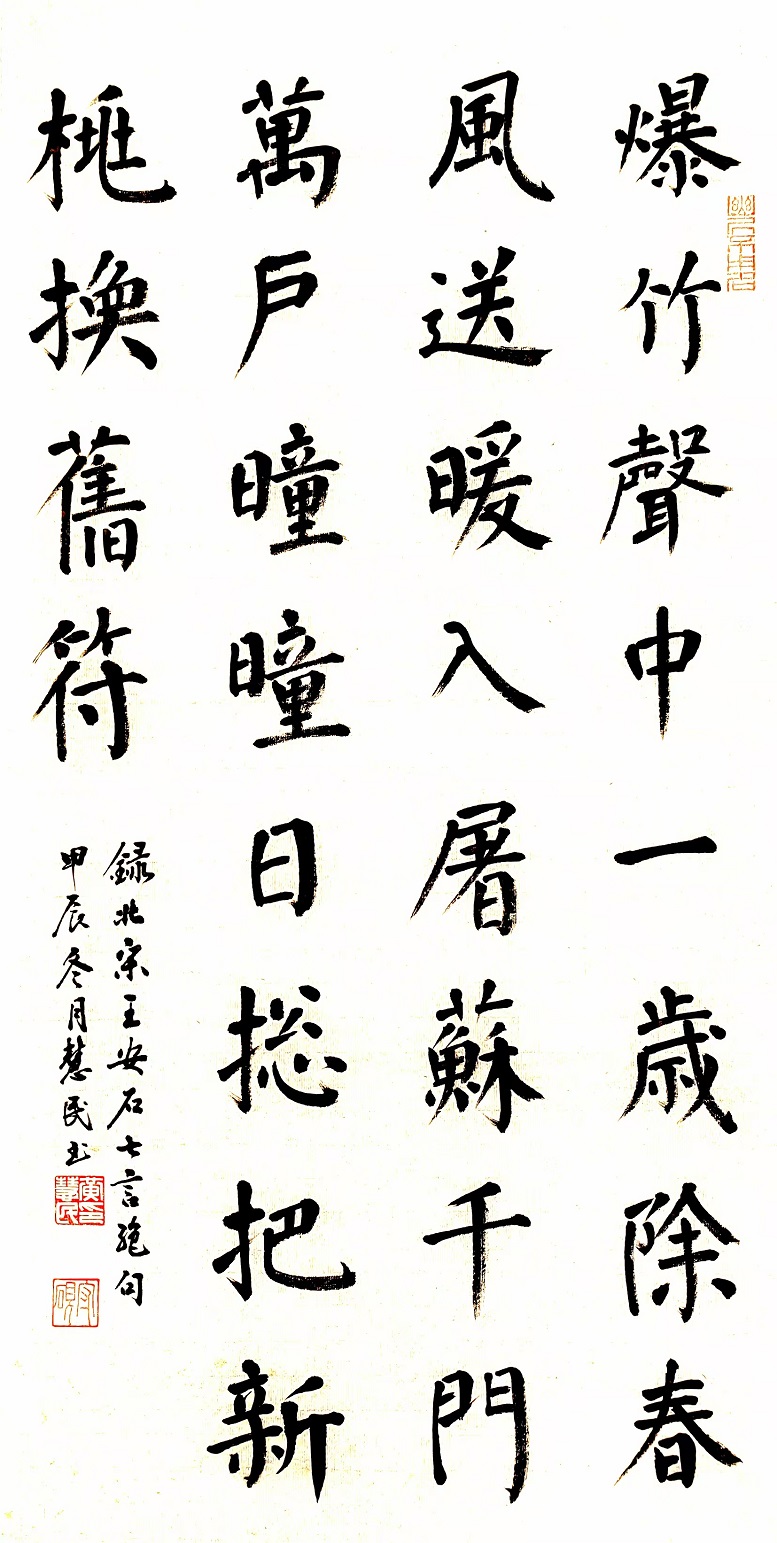 爆竹聲中一歲除春
風送暖入屠蘇千門
萬戶曈曈日捴把新
桃換舊符
録北宋王安石七言絶句
甲辰冬月慧民书
黃慧民印